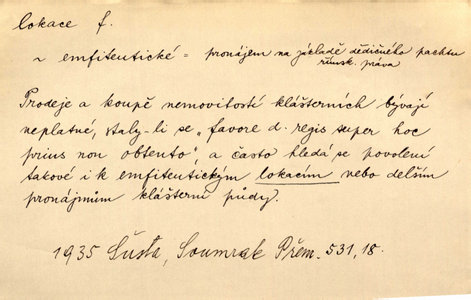 lokace f.
~ emfiteutické = pronájem na základě dědičného pachtu
římsk. práva
Prodeje a koupě nemovitostí klášterních bývají
neplatné, staly-li se „favore d. regis super hoc
prius non obtento", a často hledá se povolení
takové i k emfiteutickým lokacím nebo delším
pronájmům klášterní půdy.
1935 Šusta, Soumrak Přem. 531, 18.